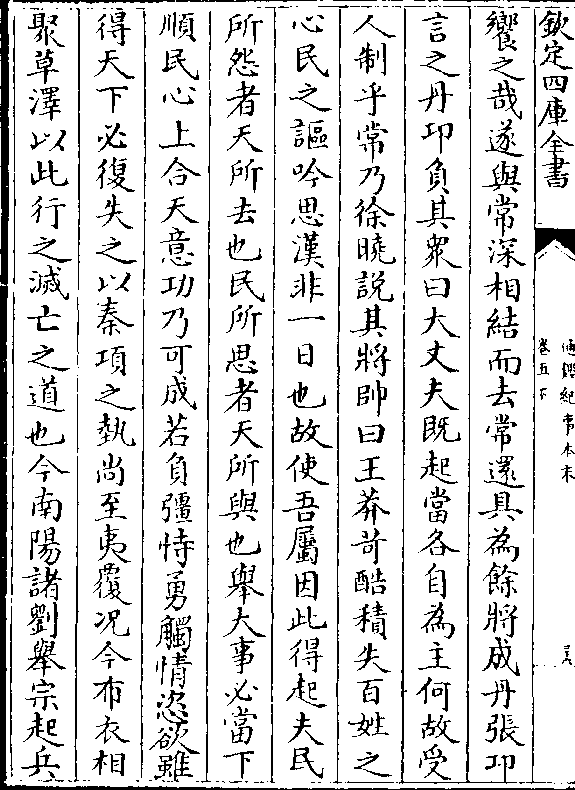 欽定四庫全書
通鑑紀事本末
卷五下
饗之哉遂與常深相結而去常還具為餘將成丹張卬
言之丹卬負其衆曰大丈夫既起當各自為主何故受
人制乎常乃徐曉說其將帥曰王莽苛酷積失百姓之
心民之謳吟思漢非一日也故使吾屬因此得起夫民
所怨者天所去也民所思者天所與也舉大事必當下
順民心上合天意功乃可成若負彊恃勇觸情恣欲雖
得天下必復失之以秦項之埶尚至夷覆况今布衣相
聚草澤以此行之滅亡之道也今南陽諸劉舉宗起兵